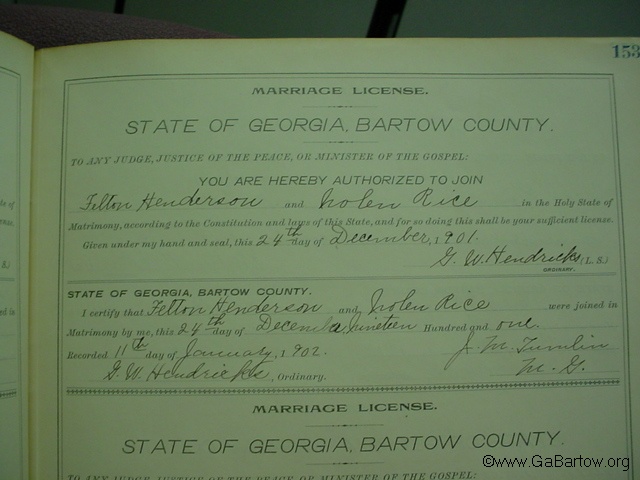 153
MARRIAGE LICENSE.
STATE OF GEORGIA, BARTOW COUNTY.
TO ANY JUDGE, JUSTICE OF THE PEACE, OR MINISTER OF THE GOSPEL:
YOU ARE HEREBY AUTHORIZED TO JOIN
Felton Henderson and Nolen Rice in the Holy State of
Matrimony, according to the Constitution and laws of this State, and for so doing this shall be your sufficient license.
Given under my hand and seal, this 24th day of December, 1901.
G. W. Hendricks (L. S.)
ORDINARY.
STATE OF GEORGIA, BARTOW COUNTY.
I certify that Felton Henderson and Nolen Rice were joined in
Matrimony by me, this 24th day of December Nineteen Hundred and one
Recorded 11th day of January, 1902. J. M. Tumlin
G. W. Hendricks, Ordinary. M. G.
MARRIAGE LICENSE.
STATE OF GEORGIA, BARTOW COUNTY.
TO ANY JUDGE, JUSTICE OF THE PEACE, OR MINISTER OF THE GOSPEL:
©www.GaBartow.org